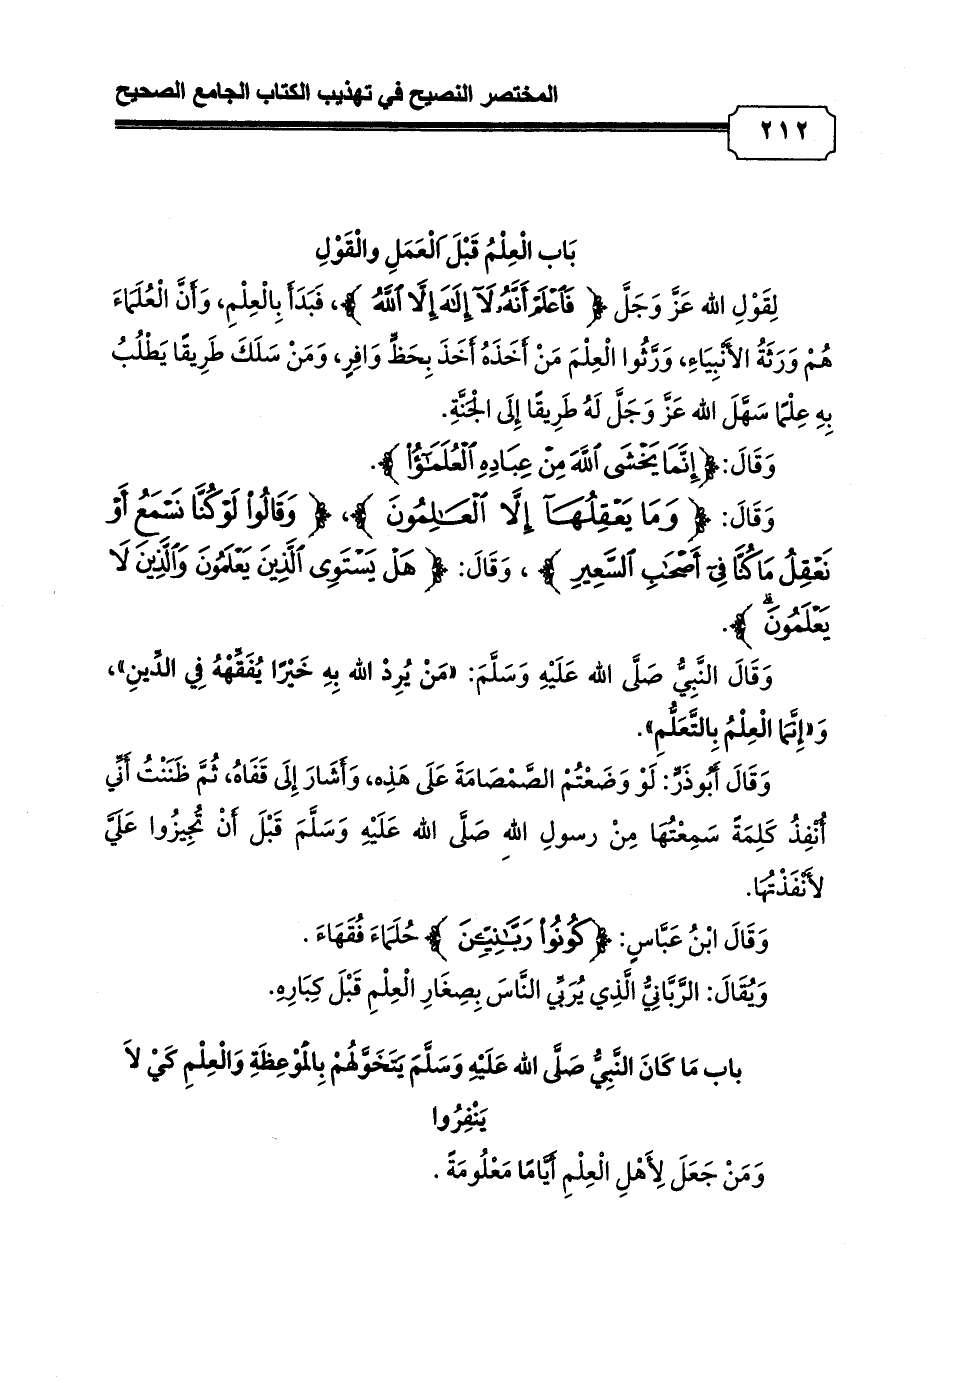 المختصر النصيح في تهذيب الكتاب الجامع الصحيح
٢١٢
بَاب الْعِلْمُ قَبْلَ الْعَمَلِ والْقَوْلِ
لِقَوْلِ الله عَزَّ وَجَلَّ ﴿ فَٱعْلَمْ أَنَّهُۥ لَآ إِلَٰهَ إِلَّا ٱللَّهُ ﴾، فَبَدَأَ بِالْعِلْمِ، وَأَنَّ الْعُلَمَاءَ
هُمْ وَرَثَةُ الأَنْبِيَاءِ، وَرَّثُوا الْعِلْمَ مَنْ أَخَذَهُ أَخَذَ بِحَظٍّ وَافِرٍ، وَمَنْ سَلَكَ طَرِيقًا يَطْلُبُ
بِهِ عِلْمًا سَهَّلَ الله عَزَّ وَجَلَّ لَهُ طَرِيقًا إِلَى الْجَنَّةِ.
وَقَالَ: ﴿ إِنَّمَا يَخْشَى ٱللَّهَ مِنْ عِبَادِهِ ٱلْعُلَمَٰٓؤُا۟ ﴾.
وَقَالَ: ﴿ وَمَا يَعْقِلُهَآ إِلَّا ٱلْعَٰلِمُونَ ﴾، ﴿ وَقَالُوا۟ لَوْ كُنَّا نَسْمَعُ أَوْ
نَعْقِلُ مَا كُنَّا فِىٓ أَصْحَٰبِ ٱلسَّعِيرِ ﴾، وَقَالَ: ﴿ هَلْ يَسْتَوِى ٱلَّذِينَ يَعْلَمُونَ وَٱلَّذِينَ لَا
يَعْلَمُونَ ۗ ﴾.
وَقَالَ النَّبِيُّ صَلَّى الله عَلَيْهِ وَسَلَّمَ: «مَنْ يُرِدْ الله بِهِ خَيْرًا يُفَقِّهْهُ فِي الدِّينِ»،
وَ«إِنَّمَا الْعِلْمُ بِالتَّعَلُّمِ».
وَقَالَ أَبُو ذَرٍّ: لَوْ وَضَعْتُمْ الصَّمْصَامَةَ عَلَى هَذِه، وَأَشَارَ إِلَى قَفَاهُ، ثُمَّ ظَنَنْتُ أَنِّي
أُنْفِذُ كَلِمَةً سَمِعْتُهَا مِنْ رسولِ اللهِ صَلَّى الله عَلَيْهِ وَسَلَّمَ قَبْلَ أَنْ تُجِيزُوا عَلَيَّ
لأَنْفَذْتُهَا.
وَقَالَ ابْنُ عَبَّاسٍ: ﴿ كُونُوا۟ رَبَّٰنِيِّۦنَ ﴾ حُلَمَاءَ فُقَهَاءَ .
وَيُقَالَ: الرَّبَّانِيُّ الَّذِي يُرَبِّي النَّاسَ بِصِغَارِ الْعِلْمِ قَبْلَ كِبَارِهِ.
باب مَا كَانَ النَّبِيُّ صَلَّى الله عَلَيْهِ وَسَلَّمَ يَتَخَوَّلُهُمْ بِالْمَوْعِظَةِ وَالْعِلْمِ كَيْ لاَ
يَنْفِرُوا
وَمَنْ جَعَلَ لِأَهْلِ الْعِلْمِ أَيَّامًا مَعْلُومَةً .